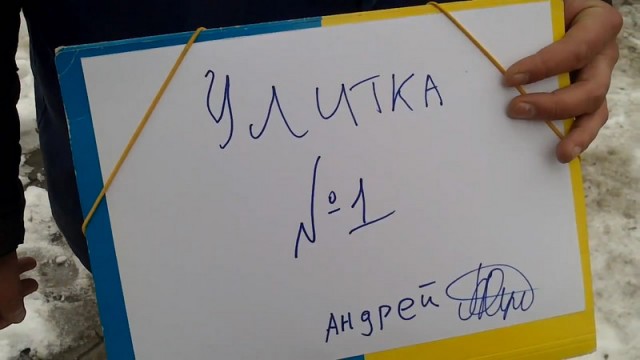 УЛИТКА
№1
АНДРЕЙ